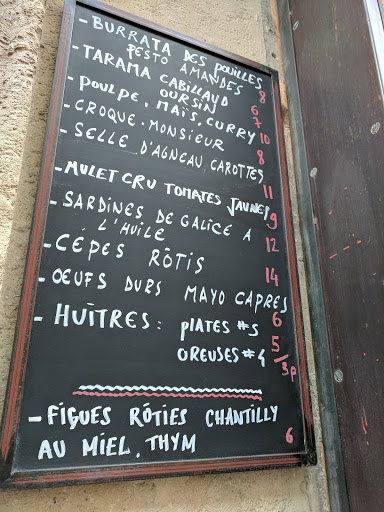 - BURRATA DES POUILLES
PESTO AMANDES 8
- TARAMA CABILLAUD 6
OURSIN 7
- POULPE, MAÏS, CURRY 10
- CROQUE-MONSIEUR 8
- SELLE D'AGNEAU CAROTTES 11
- MULET CRU TOMATES JAUNES 9
- SARDINES DE GALICE A
L'HUILE 12
- CÉPES RÔTIS 14
- OEUFS DURS MAYO CAPRES 6
- HUÎTRES: PLATES #5 5
CREUSES #4 /3P
- FIGUES RÔTIES CHANTILLY
AU MIEL, THYM 6